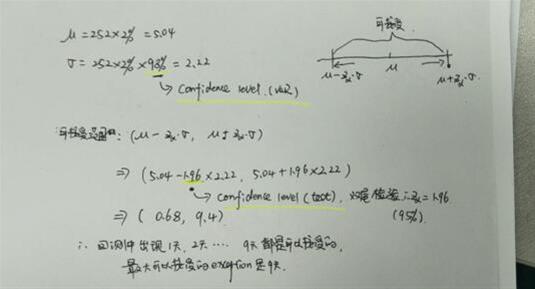 μ = 252×2% = 5.04
σ = 252×2%×98% = 2.22
→ Confidence level (VaR)
可接受
μ-zα·σ μ μ+zα·σ
可接受范围: (μ - zα·σ, μ + zα·σ)
⇒ (5.04-1.96×2.22, 5.04+1.96×2.22)
→ confidence level (test), 双尾检验 ∴ zα = 1.96
(95%)
⇒ (0.68, 9.4)
∴ 回测中出现1天, 2天 ···· 9天都是可以接受的,
最大可以接受的exception是9天.